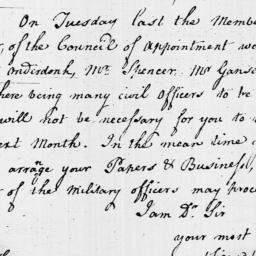 On Tuesday last the Membe
of the Council of Appointment we
Onderdonk, Mr. Spencer. Mr Ganse
here being many civil Officers to be
will not be necessary for you to
ext Month. In the mean time
arrange your Papers & Business,
of the Military officers may proc
I am Dr. Sir
your most